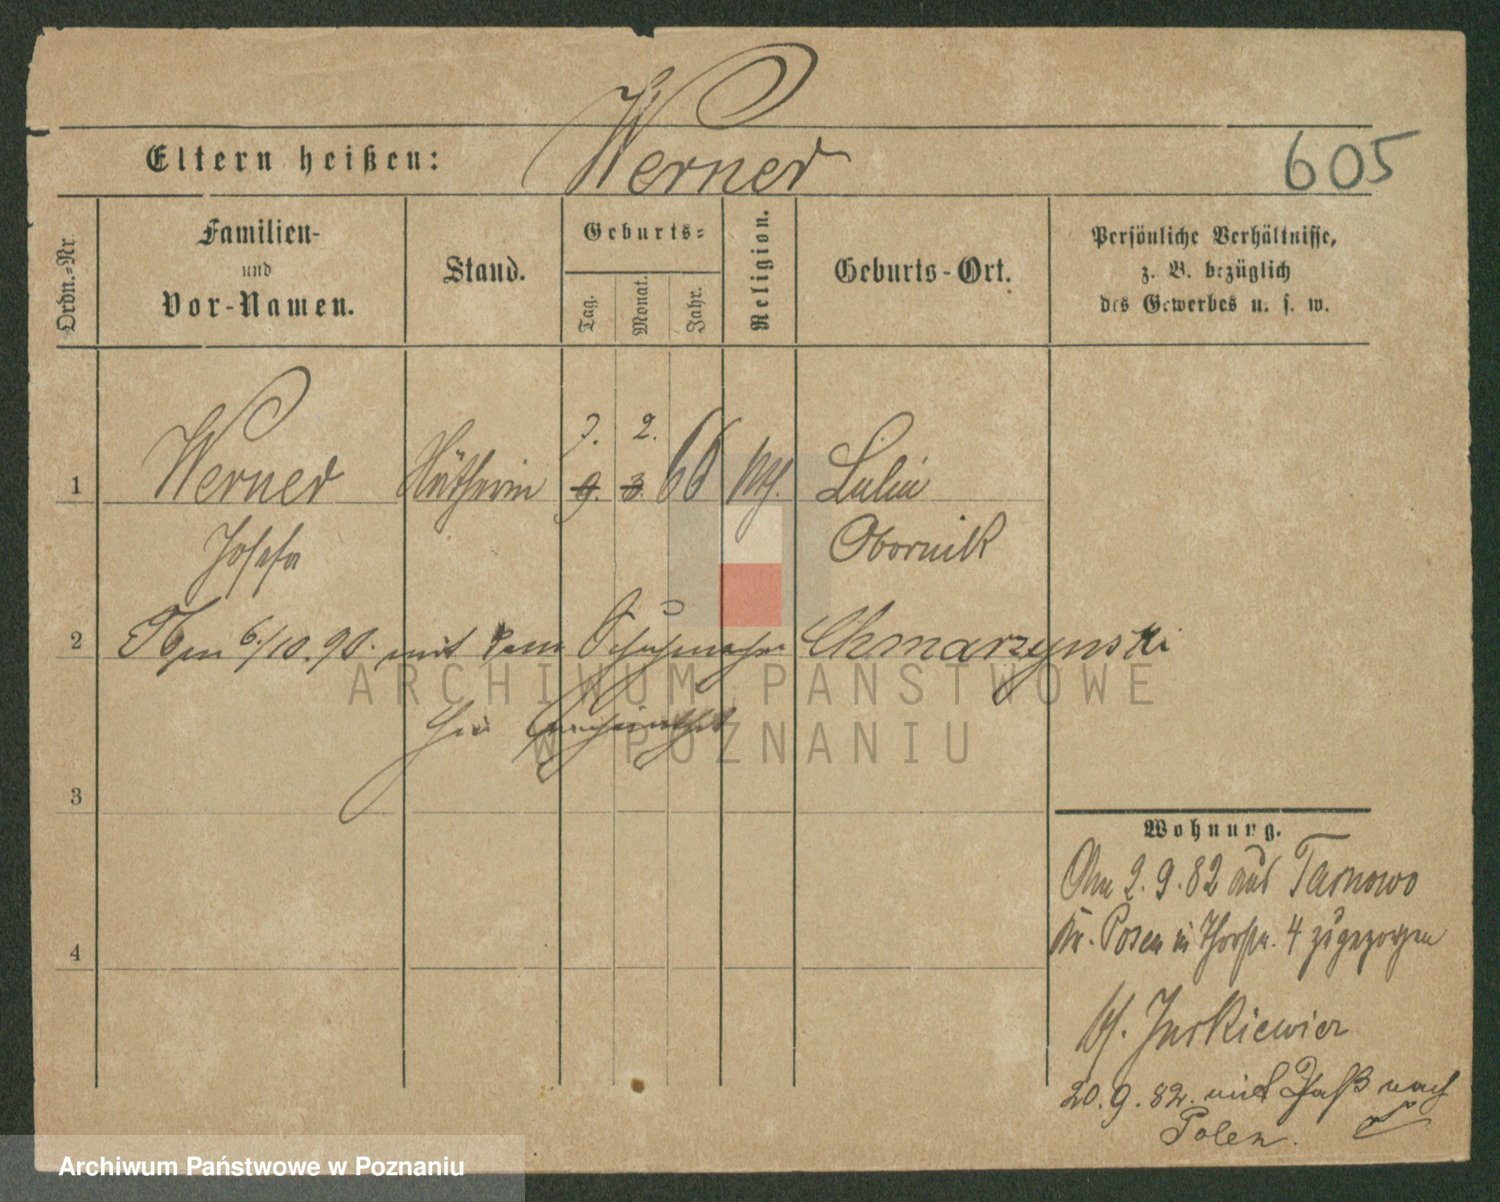 Werner
Eltern heißen:
605
Ordn.-Nr.
Familien-
und
Vor-Namen.
Stand.
Geburts-
Tag.
Monat.
Jahr.
Religion.
Geburts-Ort.
Persönliche Verhältnisse,
z. B. bezüglich
des Gewerbes u. s. w.
7. 2.
1 Werner 9. 3. 66 Lulin
Josefa Obornik
2 6/10.90. mit dem Schuhmacher Chmarzynski
hier verheirathet
3
4
Wohnung.
Am 2.9.82 aus Tarnowo
Kr. Posen in Thorstr. 4 zugezogen
bf. Jurkiewicz
20.9.82. mit Paß nach
Polen.
ARCHIWUM PAŃSTWOWE
W POZNANIU
Archiwum Państwowe w Poznaniu